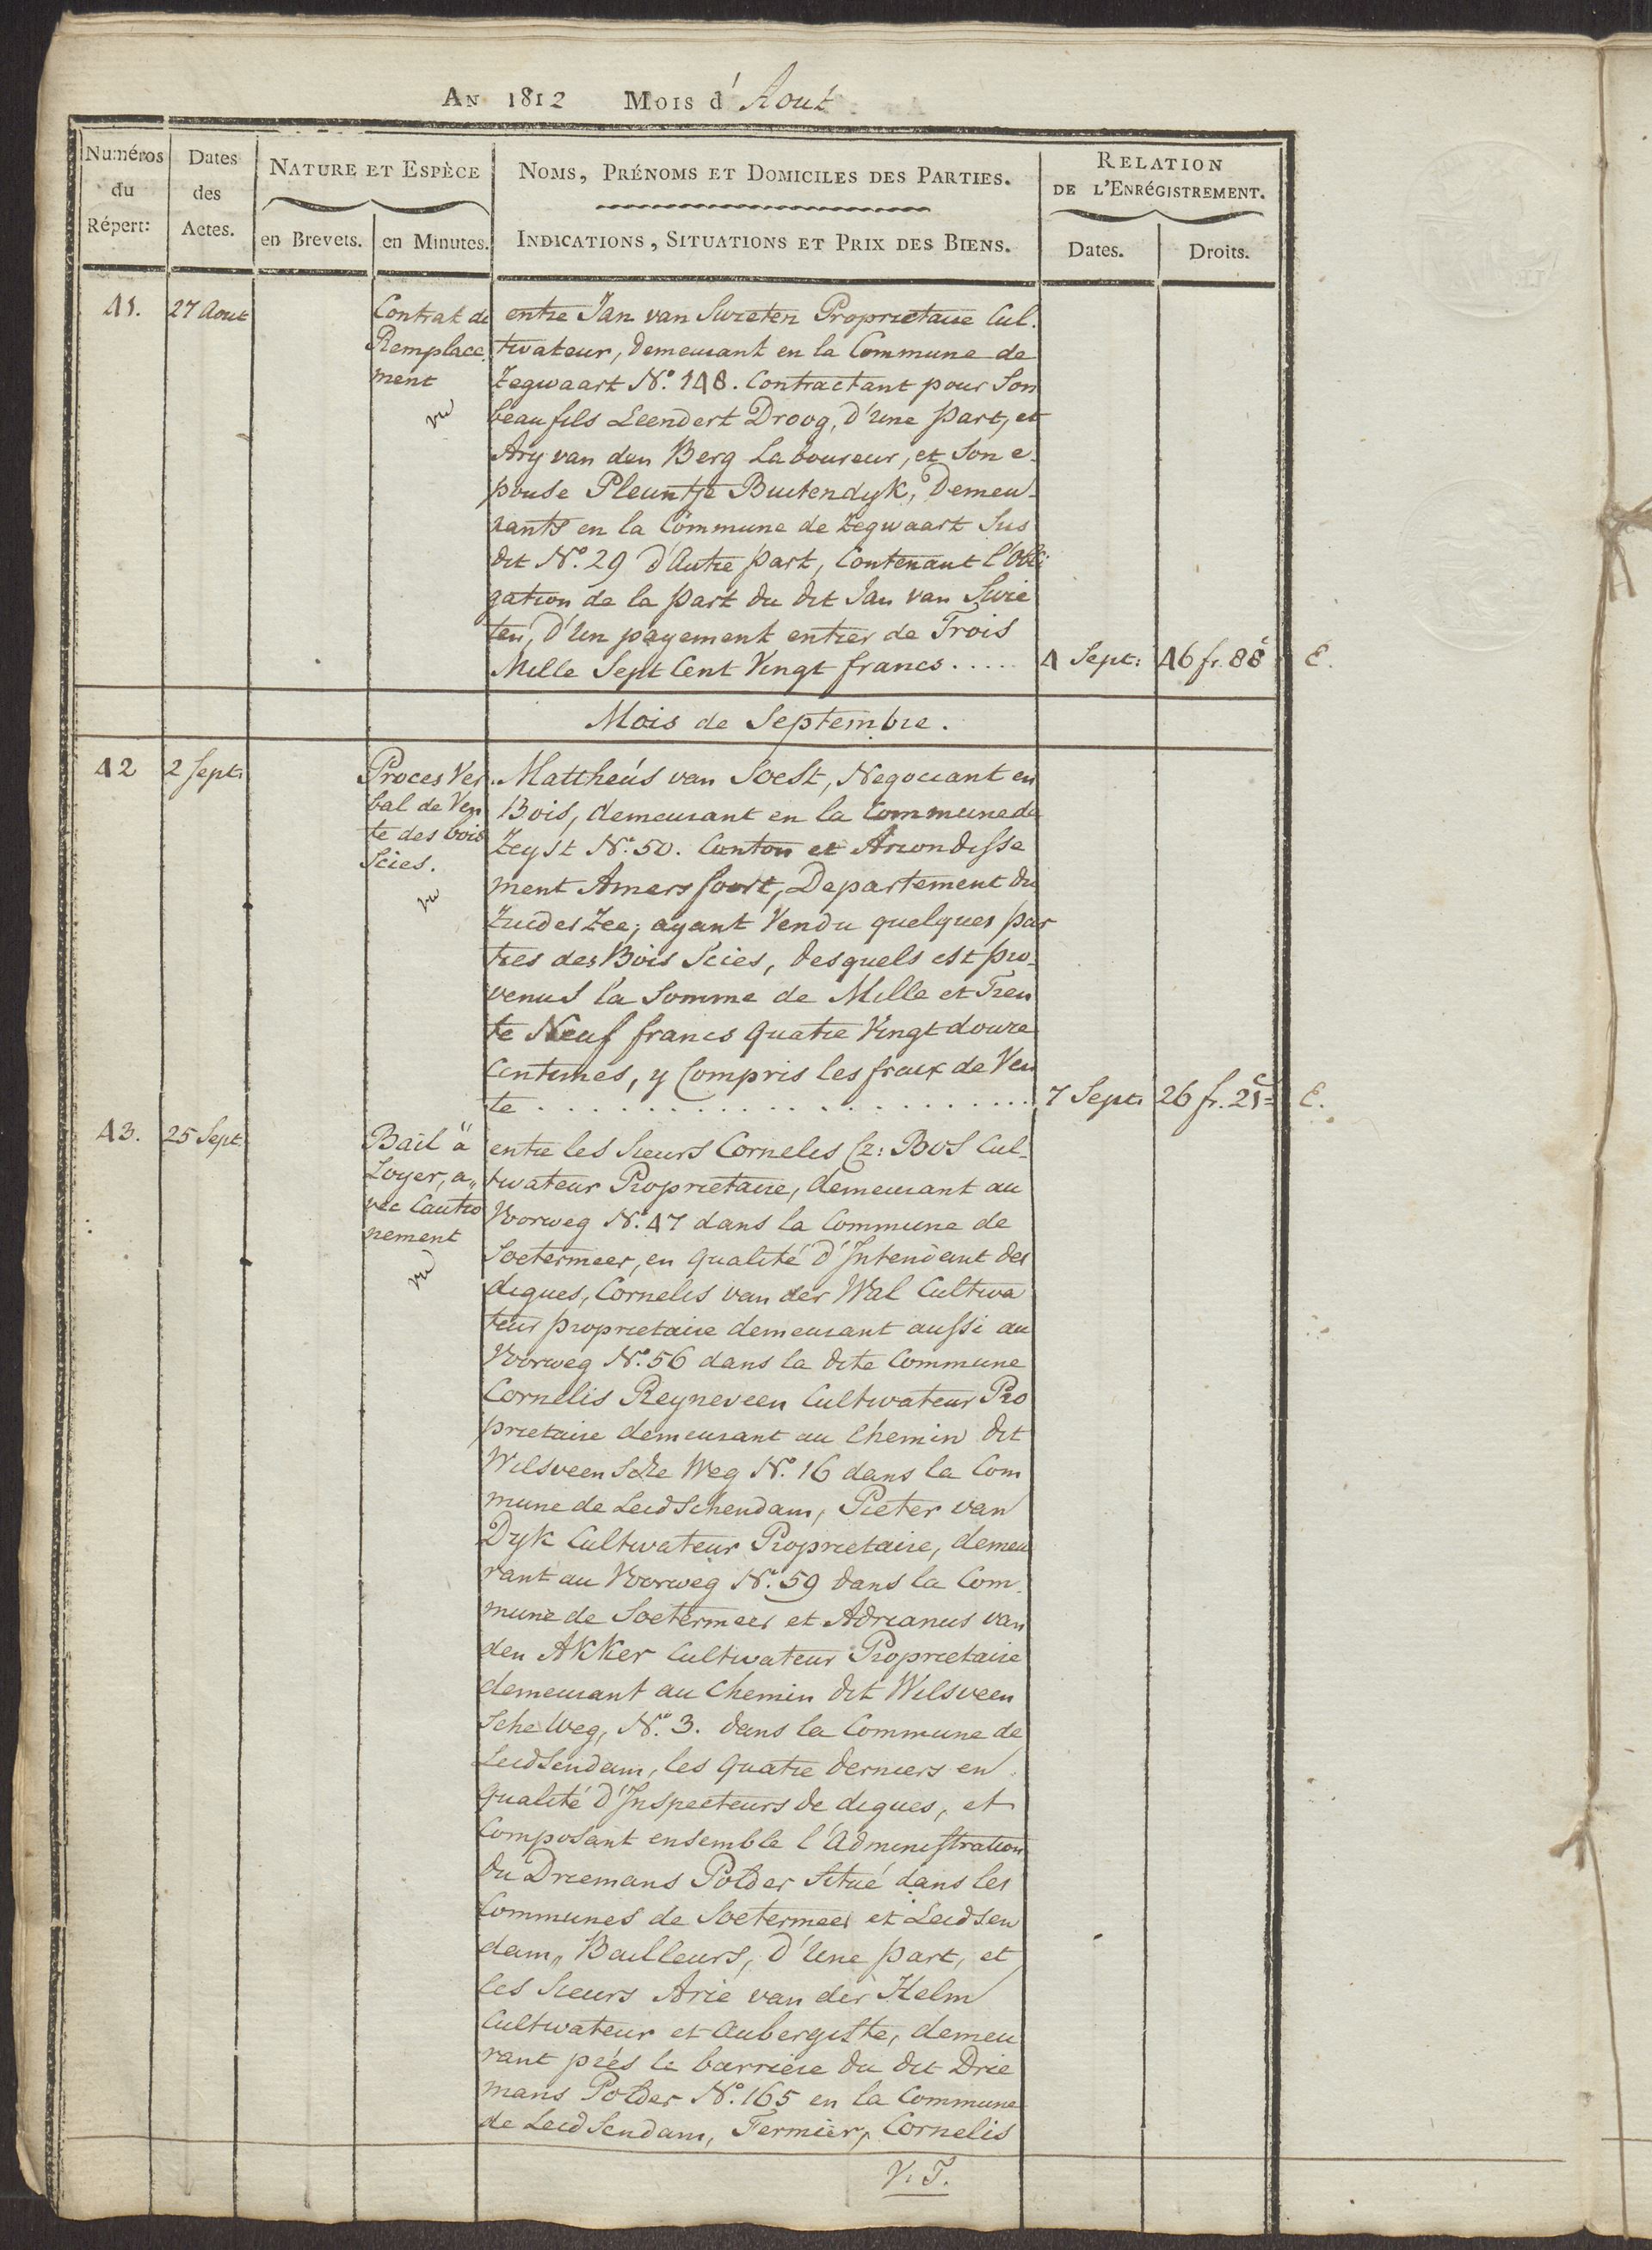 An 1812 Mois d'Aout
Numéros du Répert:
Dates des Actes.
Nature et Espèce
en Brevets.
en Minutes.
Noms, Prénoms et Domiciles des Parties.
Indications, Situations et Prix des Biens.
Relation de l'Enrégistrement.
Dates.
Droits.
41.
27 Aout
Contrat de
Remplace
ment
vu
entre Jan van Swieten Proprietaire Cul.
tivateur, demeurant en la Commune de
Zegwaart N.o 148. Contractant pour Son
beau fils Leendert Droog, d'Une part, et
Ary van den Berg Laboureur, et Son e.
pouse Pleuntje Buitendyk, Demeu-
rants en la Commune de Zegwaart Sus
dit N.o 29 d'Autre part, Contenant l'Obli
gation de la part du dit Jan van Swie
ten, d'Un payement entier de Trois
Mille Sept Cent Vingt francs.....
4 Sept:
46 fr. 88 c
E.
Mois de Septembre.
42
2 Sept:
Proces Ver
bal de Ven
te des bois
Scies.
vu
Mattheus van Soest, Negociant en
Bois, demeurant en la Commune de
Zeyst N.o 50. Canton et Arrondisse
ment Amersfoort, Departement du
Zuider Zee; ayant Vendu quelques par
ties des Bois Scies, desquels est pro-
venus la Somme de Mille et Tren
te Neuf francs Quatre Vingt douze
Centimes, y Compris les fraix de Ven
te . . . . . . . . . . . . . . . .
7 Sept:
26 fr. 21 c
E.
43.
25 Sept
Bail à
Loyer, a„
vec Cautio
nement
vu
entre les Sieurs Cornelis Cz: Bos Cul-
tivateur Proprietaire, demeurant au
Voorweg N.o 47 dans la Commune de
Soetermeer, en qualité d'Intendant des
digues, Cornelis van der Wal Cultiva
teur proprietaire demeurant aussi au
Voorweg N.o 56 dans la dite Commune
Cornelis Reyneveen Cultivateur Pro
prietaire demeurant au Chemin dit
Wilsveensche Weg N.o 16 dans la Com
mune de Leidschendam, Pieter van
Dyk Cultivateur Proprietaire, demeu
rant au Voorweg N.o 59 dans la Com.
mune de Soetermeer et Adrianus van
den Akker Cultivateur Proprietaire
demeurant au Chemin dit Wilsveen
sche Weg, N.o 3. dans la Commune de
Leidsendam, les Quatre derniers en
Qualité d'Inspecteurs de digues, et
Composant ensemble l'Administration
du Driemans Polder Situé dans les
Communes de Soetermeer et Leidsen
dam„ Bailleurs, d'Une part, et
les Sieurs Arie van der Helm
Cultivateur et Aubergiste, demeu
rant près la barriere du dit Drie
mans Polder N.o 165 en la Commune
de Leidsendam, Fermier, Cornelis
V. T.